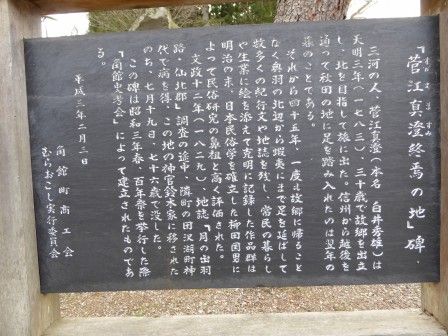 「菅江真澄終焉の地」碑
三河の人、菅江真澄（本名 白井秀雄）は
天明三年（一七八三）、三十歳で故郷を出立
し、北を目指して旅に出た。信州から越後を
通って秋田の地に足を踏み入れたのは翌年の
暮のことである。
それから四十五年、一度も故郷に帰ること
なく奥羽の北辺から蝦夷にまで足を延ばして
数多くの紀行文や地誌を残し、常民の暮らし
や生業に絵を添えて克明に記録した作品群は
明治の末、日本民俗学を確立した柳田国男に
よって民俗研究の鼻祖と高く評価された。
文政十二年（一八二九）、地誌『月の出羽
路・仙北郡』調査の途中、隣町の田沢湖町神
代で病を得、この地の神官鈴木家に移された
のち、七月十九日、七十六歳で没した。
この碑は昭和三年春、百年祭を挙行した際
『角館史考会』によって建立されたものであ
る。
平成三年二月三日
角館町商工会
むらおこし実行委員会